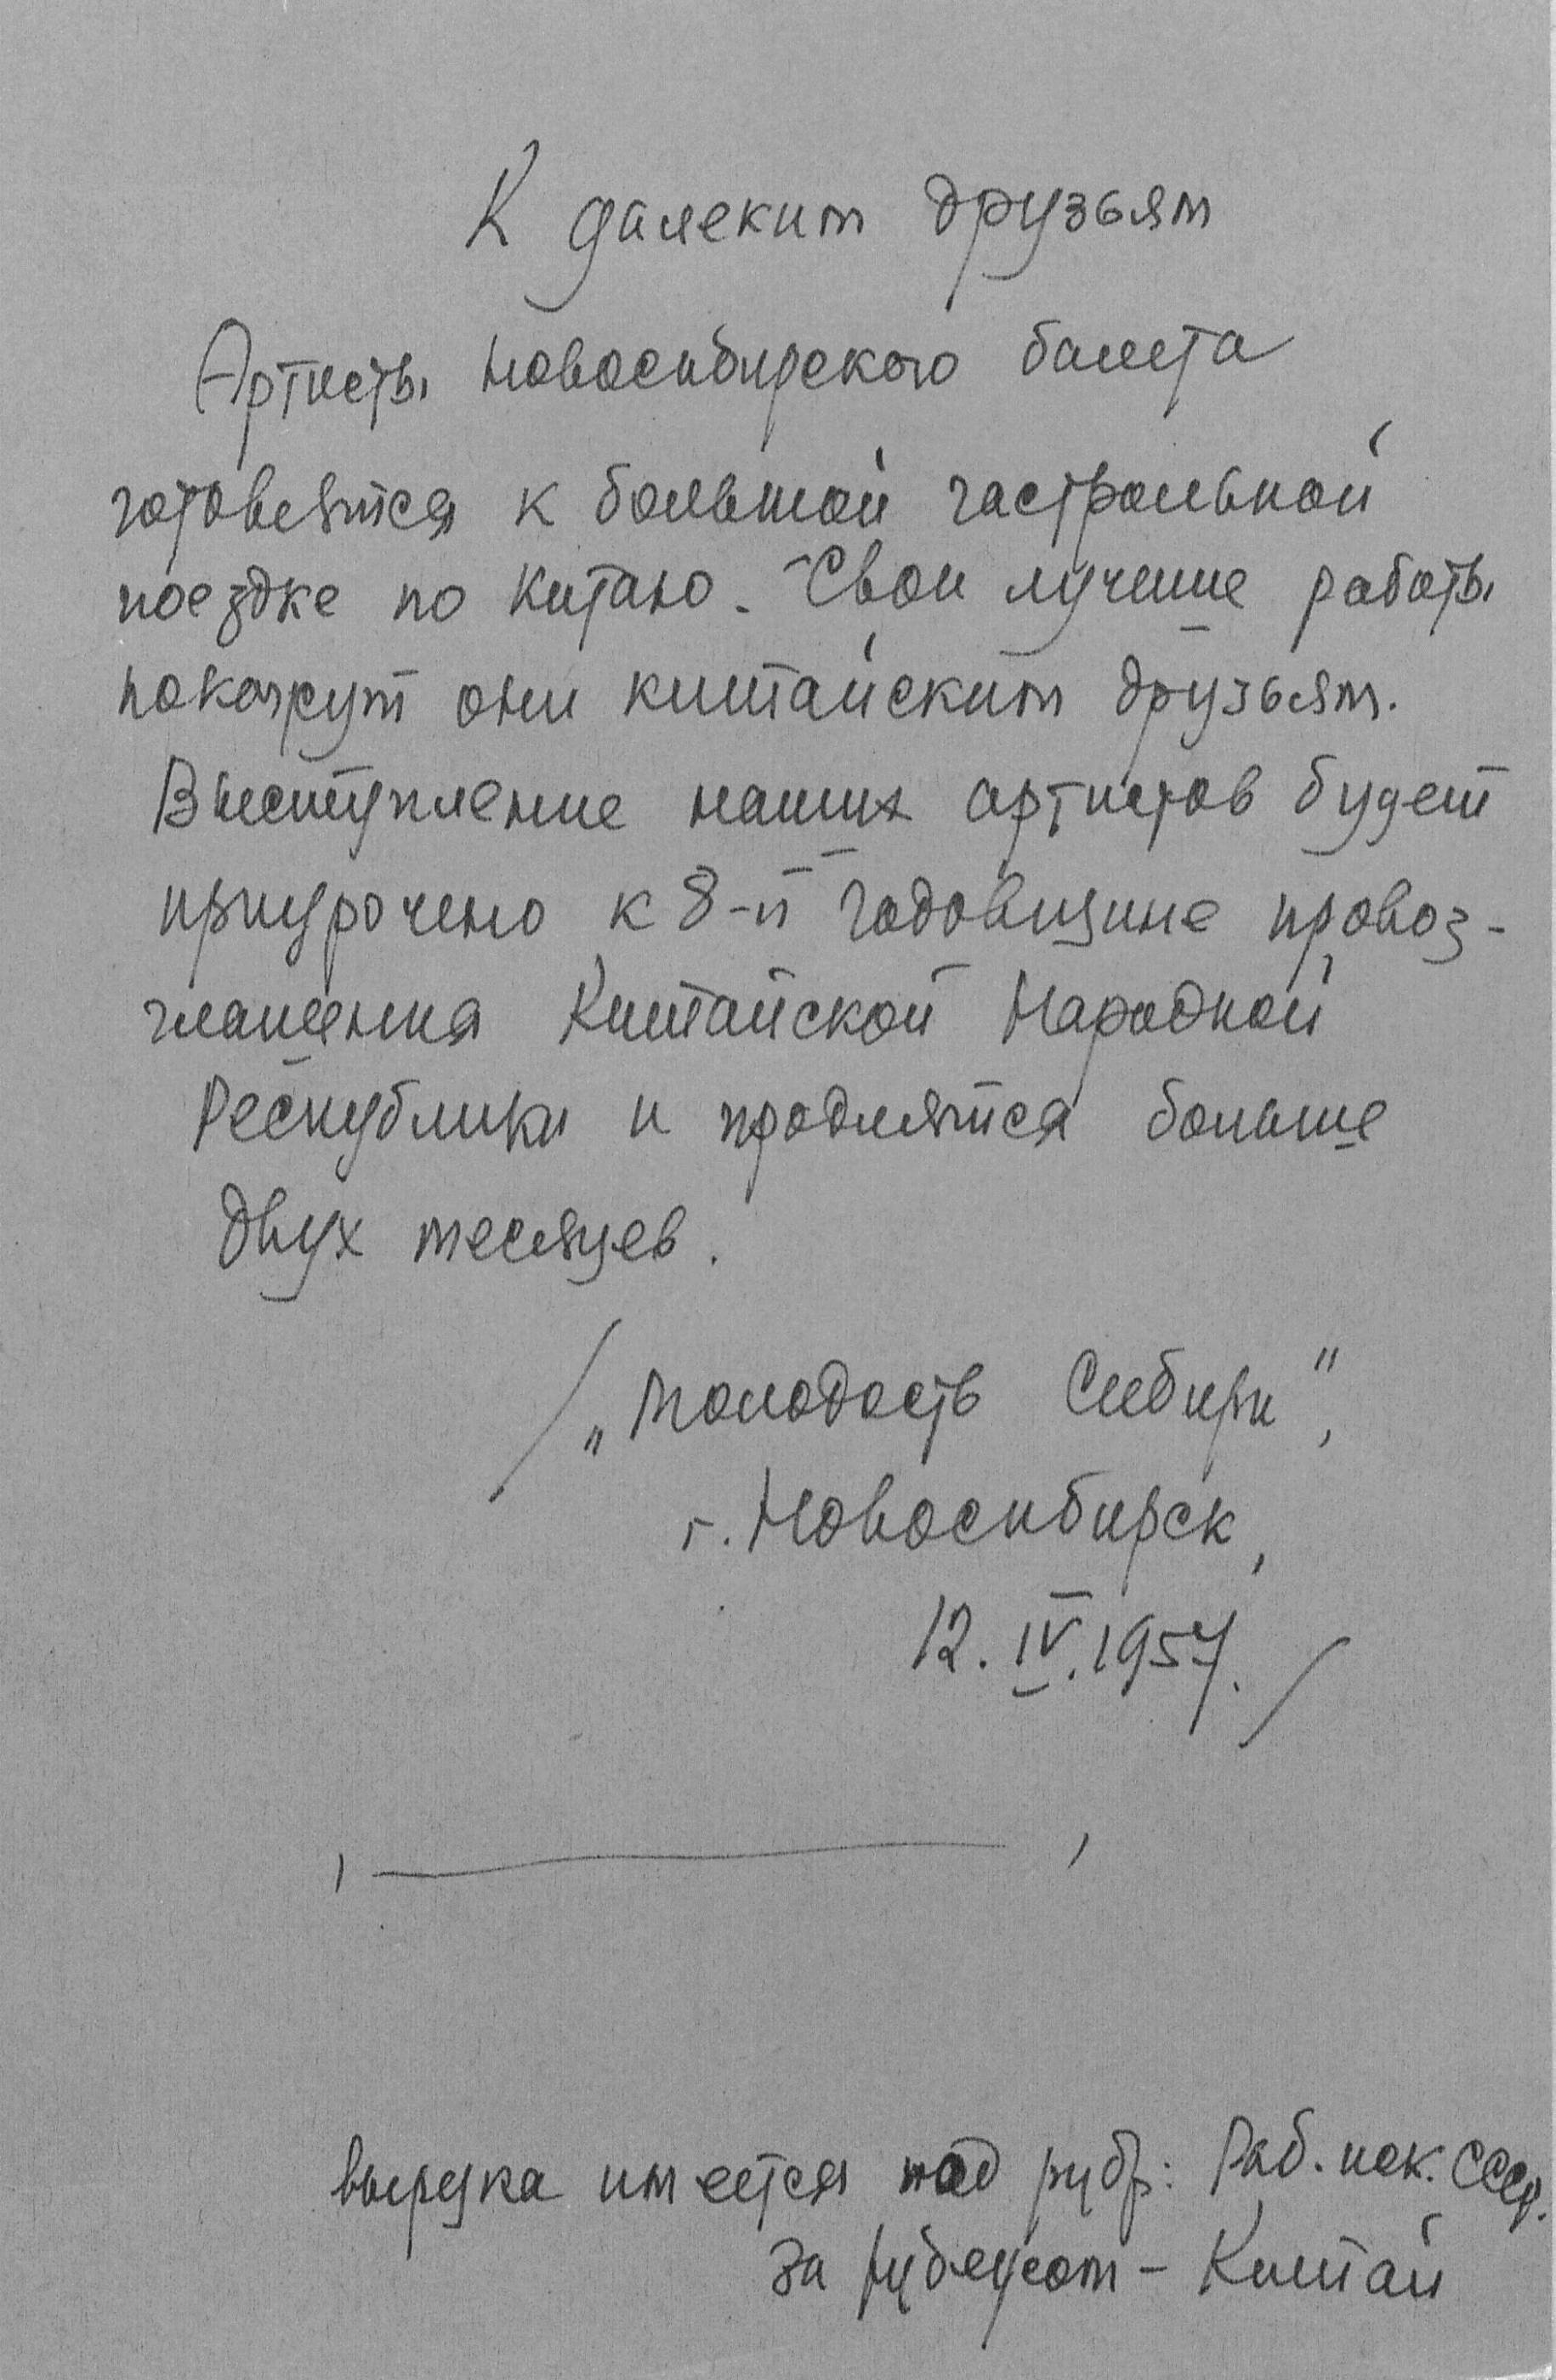 К далеким друзьям
Артисты Новосибирского балета
готовятся к большой гастрольной
поездке по Китаю. Свои лучшие работы
покажут они китайским друзьям.
Выступление наших артистов будет
приурочено к 8-й годовщине провоз-
глашения Китайской Народной
Республики и продлятся больше
двух месяцев.
/„Молодость Сибири",
г. Новосибирск,
12.IV.1957./
вырезка имеется под рубр: Раб. иск. СССР.
за рубежом - Китай